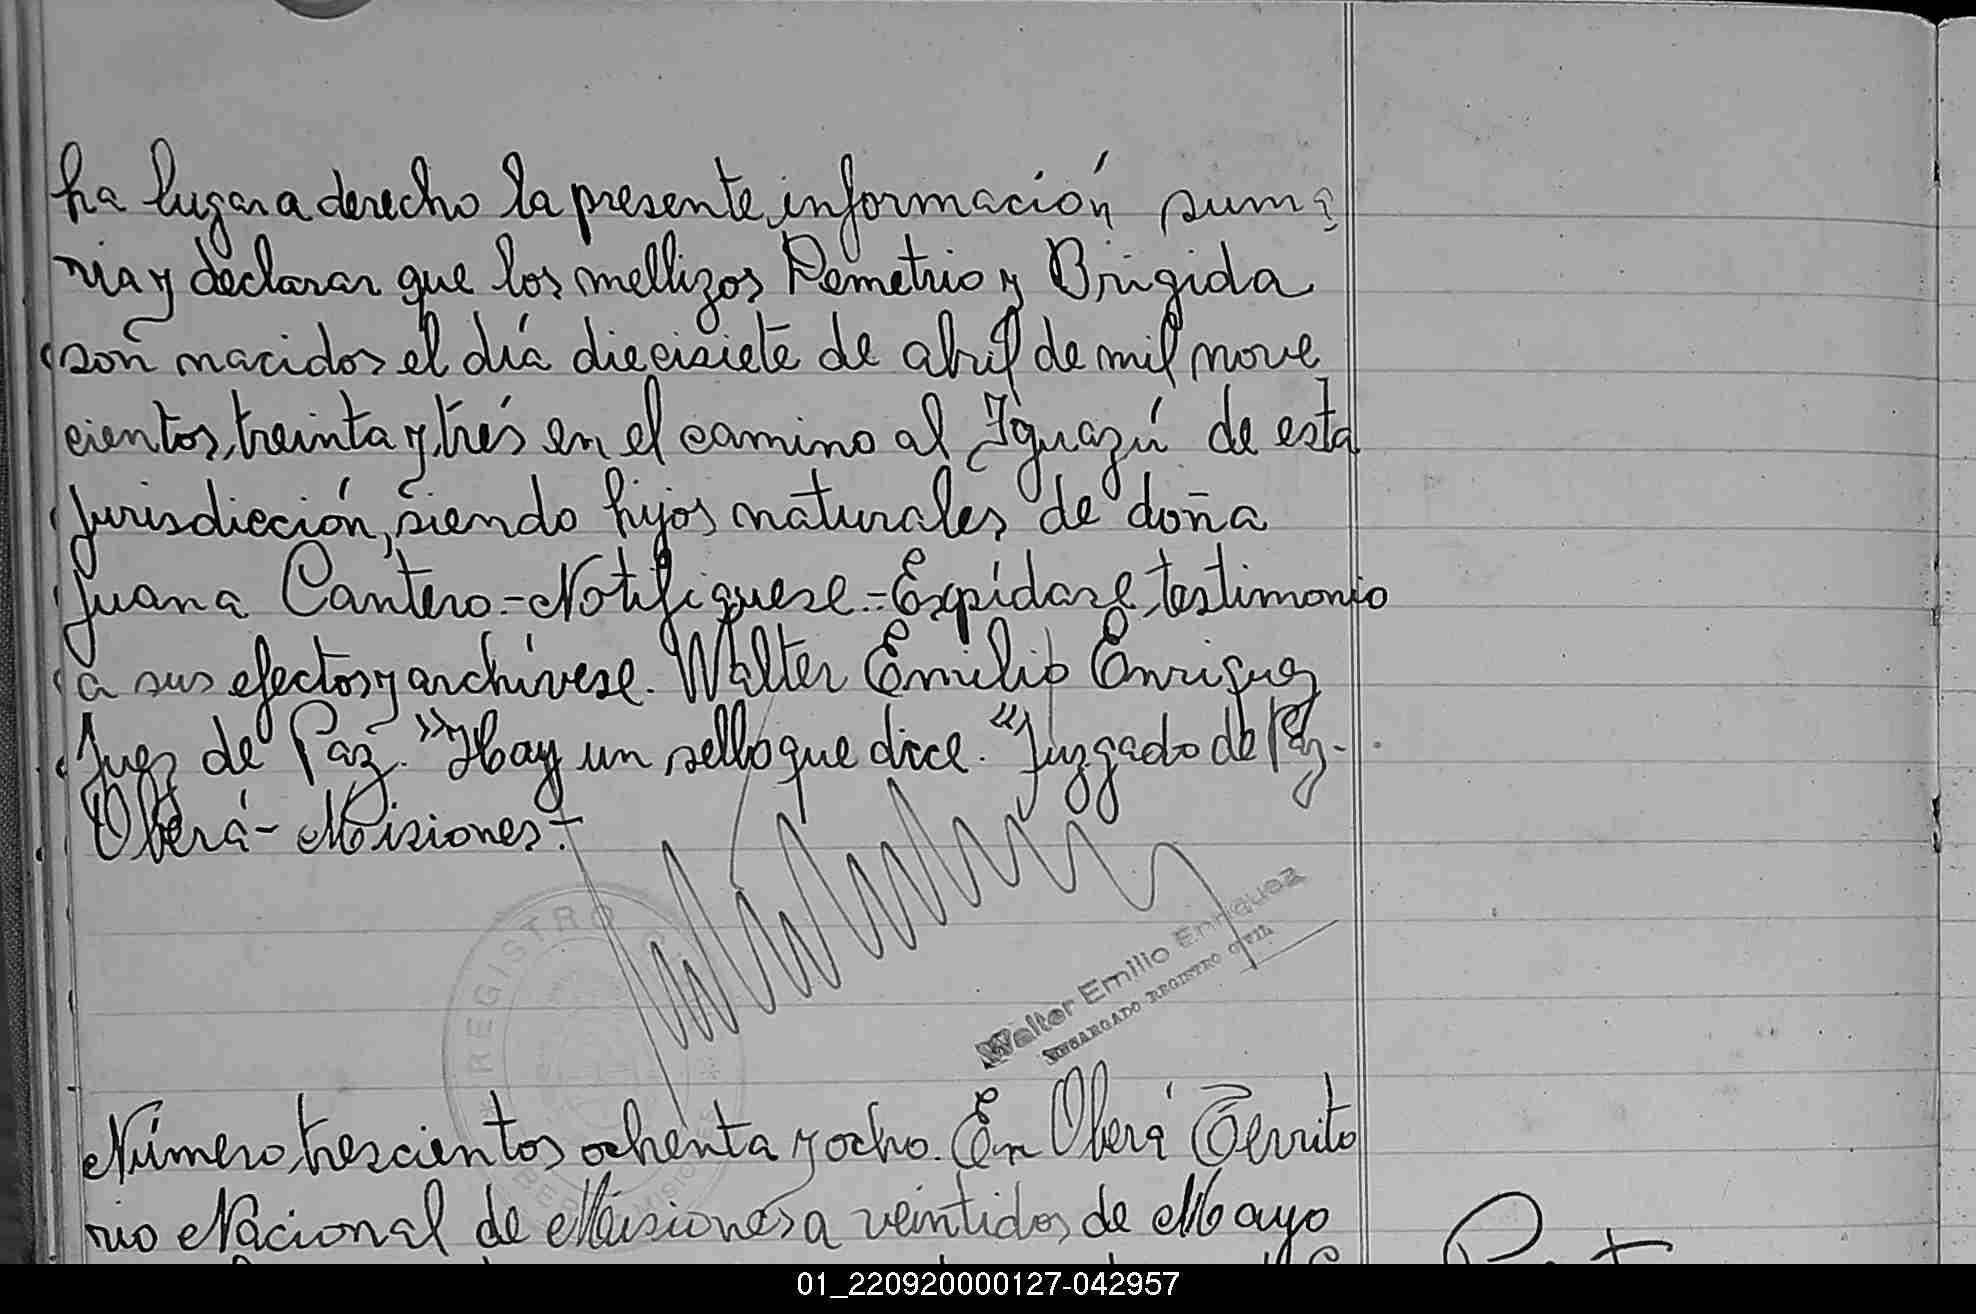 ha lugar a derecho la presente información suma
ria y declarar que los mellizos Demetrio y Brigida
son nacidos el día diecisiete de abril de mil nove
cientos, treinta y trés en el camino al Iguazú de esta
jurisdicción, siendo hijos naturales de doña
Juana Cantero.-Notifíquese.-Expídase testimonio
a sus efectos y archívese. Walter Emilio Enriquez
Juez de Paz." Hay un sello que dice. "Juzgado de Paz-.
Oberá-Misiones.-
REGISTRO
Walter Emilio Enriquez
ENCARGADO REGISTRO CIVIL
Número trescientos ochenta y ocho. En Oberá Territo
rio Nacional de Misiones a veintidos de Mayo
01_220920000127-042957